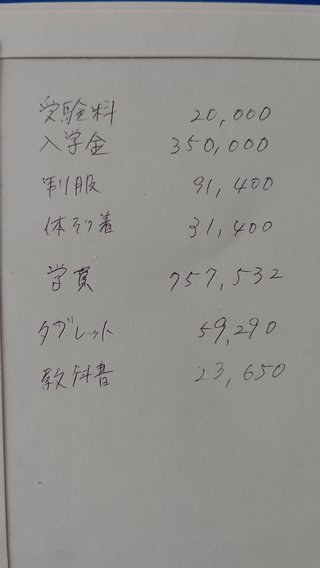 受験料 20,000
入学金 350,000
制服 91,400
体そう着 31,400
学費 757,532
タブレット 59,290
教科書 23,650